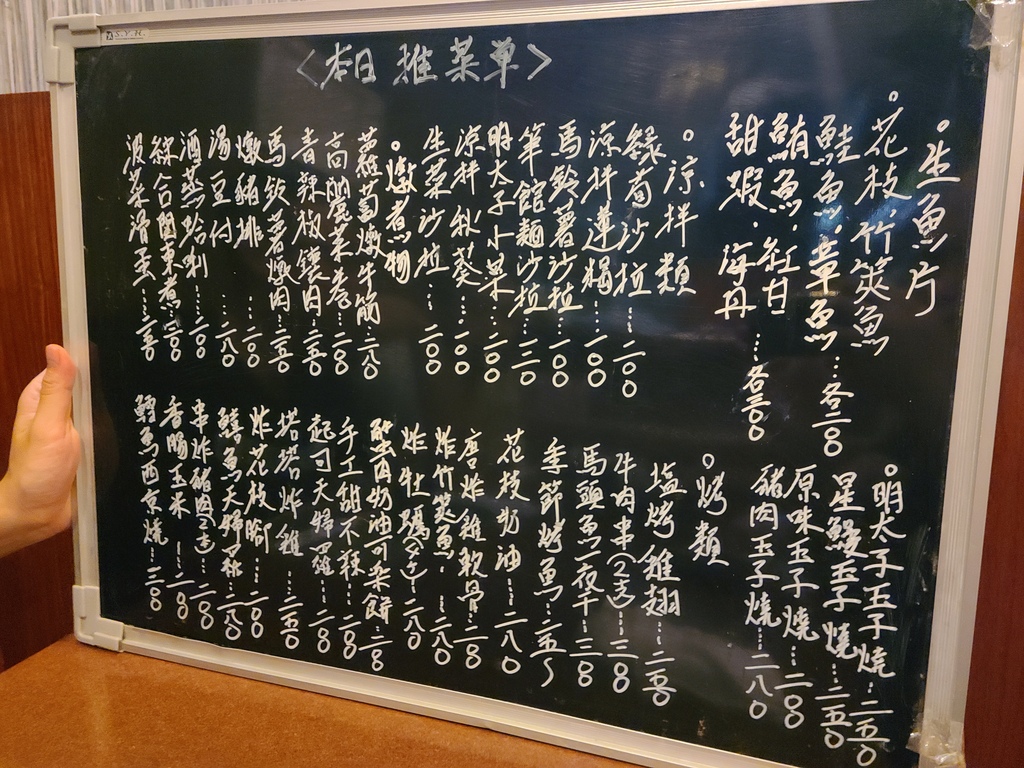 S.Y.H.
〈本日推菜單〉
。生魚片
。花枝．竹筴魚
鮭魚．旗魚
鮪魚．紅甘……各二〇〇
甜蝦．海丹……各三〇〇
。涼拌類
綠筍沙拉……二〇〇
涼拌蓮楬……一〇〇
馬鈴薯沙拉……一〇〇
筆館麵沙拉…一二〇
明太子小菜…二〇〇
涼拌秋葵…一〇〇
生菜沙拉……二〇〇
。燉煮物
蘿蔔燉牛筋…二八〇
高麗菜卷…二〇〇
青辣椒鑲肉…二五〇
馬鈴薯燉肉…二五〇
燉豬排……二〇〇
湯豆付……一八〇
酒蒸蛤蜊……二〇〇
綜合關東煮…二〇〇
菠菜滑蛋……一五〇
。明太子玉子燒…二五〇
星鰻玉子燒…二五〇
原味玉子燒…二〇〇
豬肉玉子燒…二八〇
。烤類
塩烤雞翅…二五〇
牛肉串(2串)…二三〇
馬頭魚一夜干…三二〇
季節烤魚…二五〇～
花枝奶油……二八〇
唐炸雞軟骨…二二〇
炸竹筴魚…二八〇
炸牡蠣(5ケ)…二八〇
蟹肉奶油可樂餅…二二〇
手工甜不辣…二〇〇
起司天婦羅…二二〇
塔塔炸雞…二五〇
炸花枝腳…二八〇
鱚魚天婦羅…二八〇
串炸豬肉(2串)…二〇〇
香腸玉米…二八〇
鱈魚西京燒…三二〇